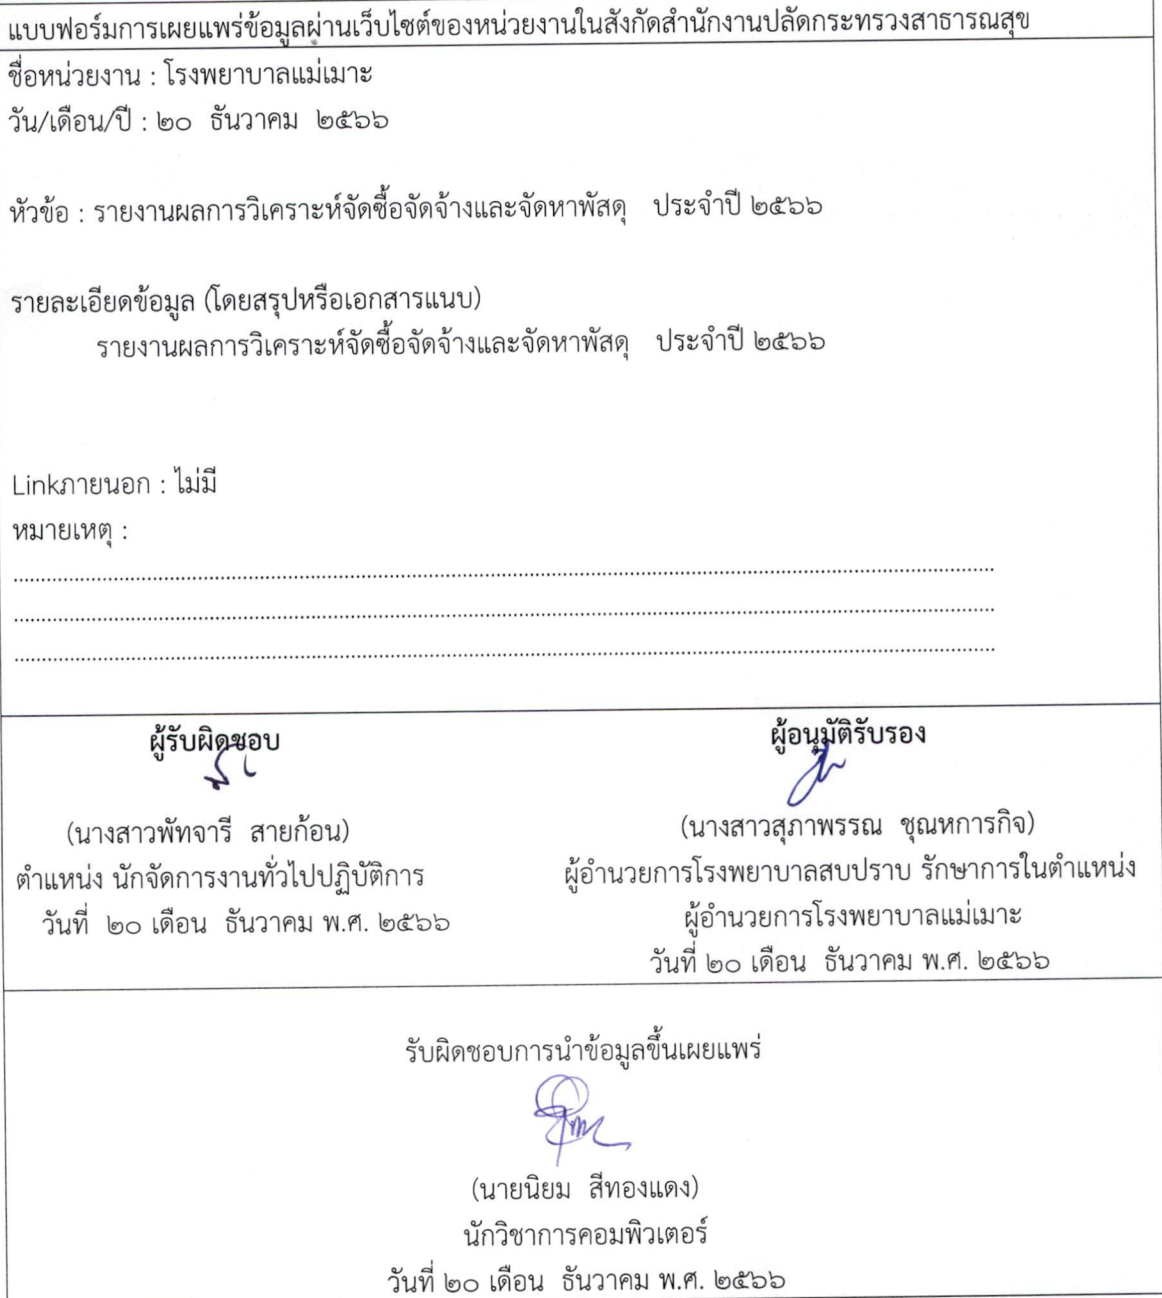 แบบฟอร์มการเผยแพร่ข้อมูลผ่านเว็บไซต์ของหน่วยงานในสังกัดสำนักงานปลัดกระทรวงสาธารณสุข
ชื่อหน่วยงาน : โรงพยาบาลแม่เมาะ
วัน/เดือน/ปี : ๒๐ ธันวาคม ๒๕๖๖
หัวข้อ : รายงานผลการวิเคราะห์จัดซื้อจัดจ้างและจัดหาพัสดุ ประจำปี ๒๕๖๖
รายละเอียดข้อมูล (โดยสรุปหรือเอกสารแนบ)
รายงานผลการวิเคราะห์จัดซื้อจัดจ้างและจัดหาพัสดุ ประจำปี ๒๕๖๖
Linkภายนอก : ไม่มี
หมายเหตุ :
ผู้รับผิดชอบ
(นางสาวพัทจารี สายก้อน)
ตำแหน่ง นักจัดการงานทั่วไปปฏิบัติการ
วันที่ ๒๐ เดือน ธันวาคม พ.ศ. ๒๕๖๖
ผู้อนุมัติรับรอง
(นางสาวสุภาพรรณ ชุณหการกิจ)
ผู้อำนวยการโรงพยาบาลสบปราบ รักษาการในตำแหน่ง
ผู้อำนวยการโรงพยาบาลแม่เมาะ
วันที่ ๒๐ เดือน ธันวาคม พ.ศ. ๒๕๖๖
รับผิดชอบการนำข้อมูลขึ้นเผยแพร่
(นายนิยม สีทองแดง)
นักวิชาการคอมพิวเตอร์
วันที่ ๒๐ เดือน ธันวาคม พ.ศ. ๒๕๖๖